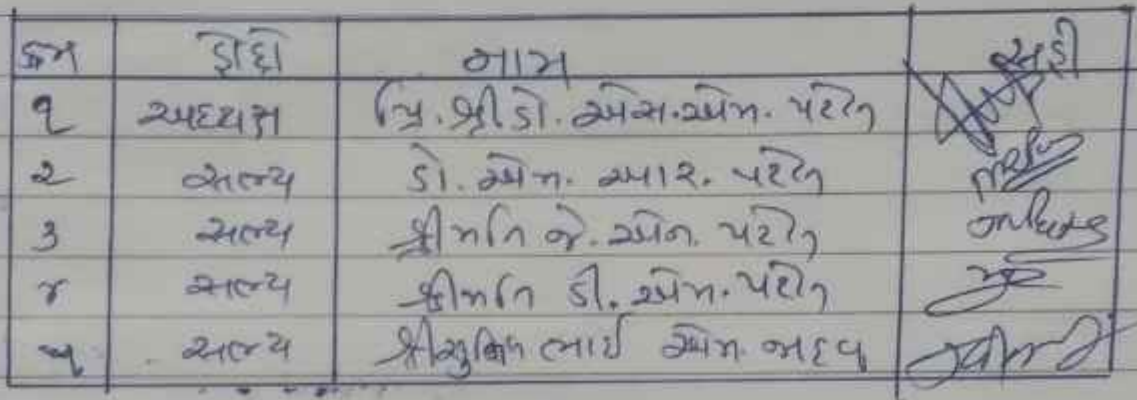 ક્રમ હોદ્દો નામ સહી
૧ અધ્યક્ષ પ્રિ. શ્રી ડો. એસ. એન. પટેલ
૨ સભ્ય ડો. એન. આર. પટેલ
૩ સભ્ય શ્રીમતિ જે. એન. પટેલ
૪ સભ્ય શ્રીમતિ ડી. એમ. પટેલ
૫ સભ્ય ભાઈ એમ. જાદવ